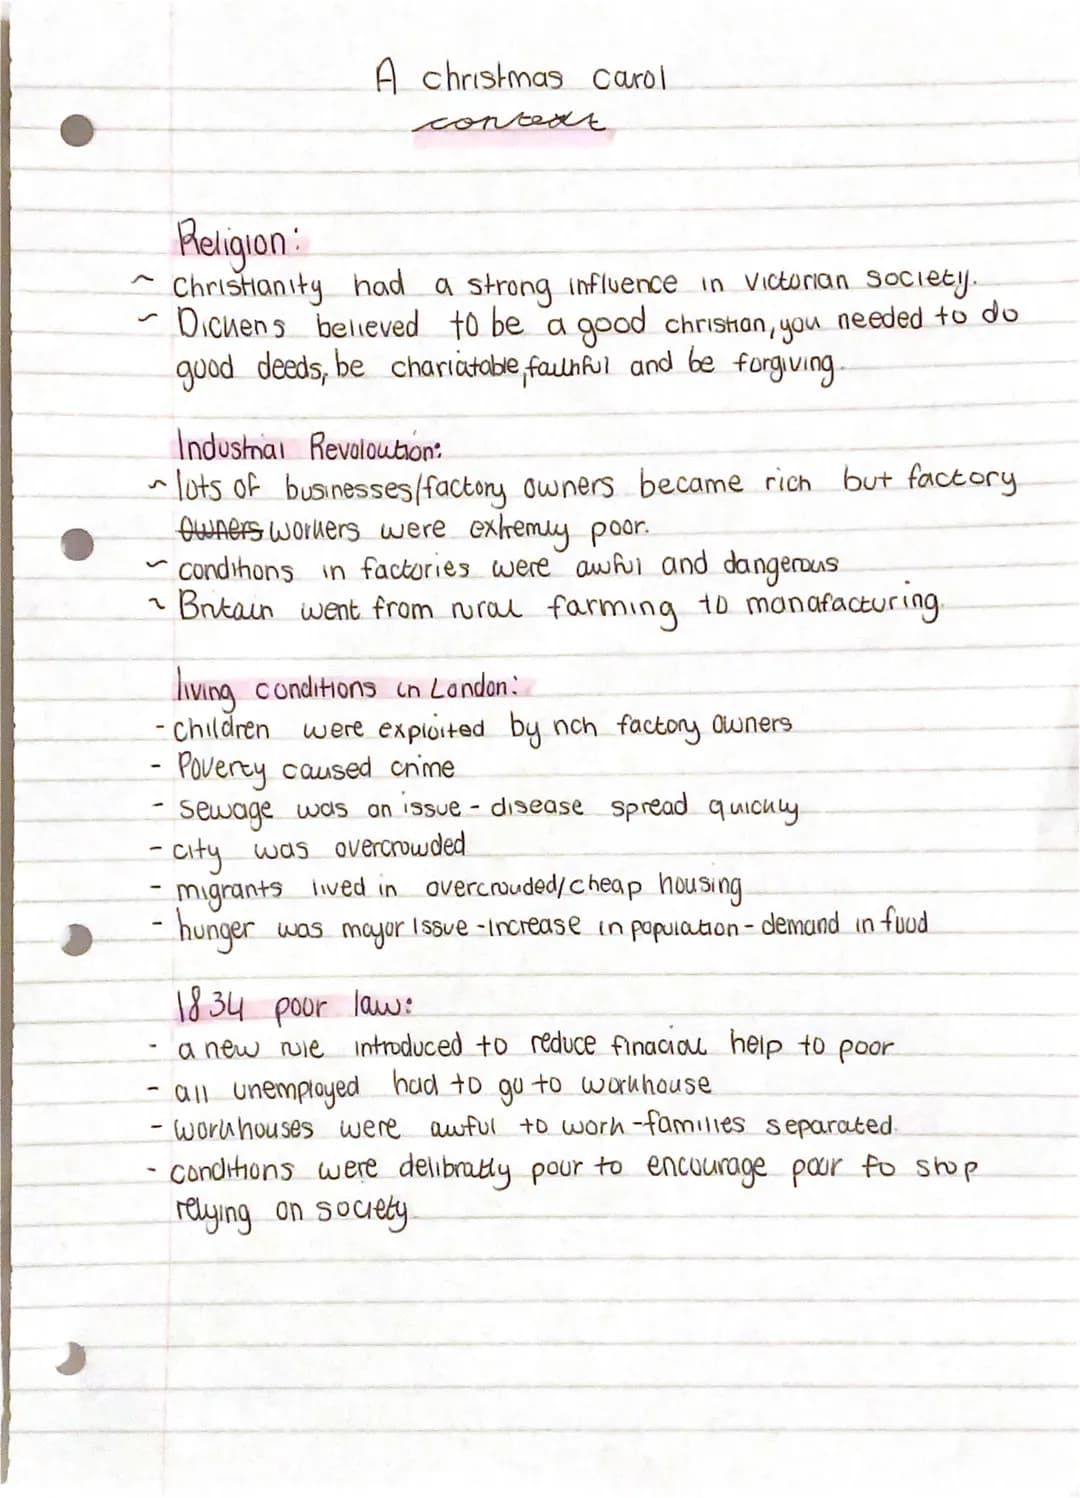 A christmas carol
context
Religion:
~ Christianity had a strong influence in Victorian Society.
~ Dickens believed to be a good christian, you needed to do
good deeds, be chariatable, faithful and be forgiving.
Industrial Revoloution:
~ lots of businesses/factory owners became rich but factory
owners workers were extremly poor.
~ conditions in factories were awful and dangerous
~ Britain went from rural farming to manafacturing.
living conditions in London:
- children were exploited by rich factory owners
- Poverty caused crime
- sewage was an issue - disease spread quickly
- city was overcrowded
- migrants lived in overcrouded/cheap housing
- hunger was mayor issue - increase in population - demand in food
1834 poor law:
- a new rule introduced to reduce finacial help to poor
- all unemployed had to go to workhouse
- workhouses were awful to work - families separated.
- conditions were delibratly pour to encourage pour to stop
relying on society